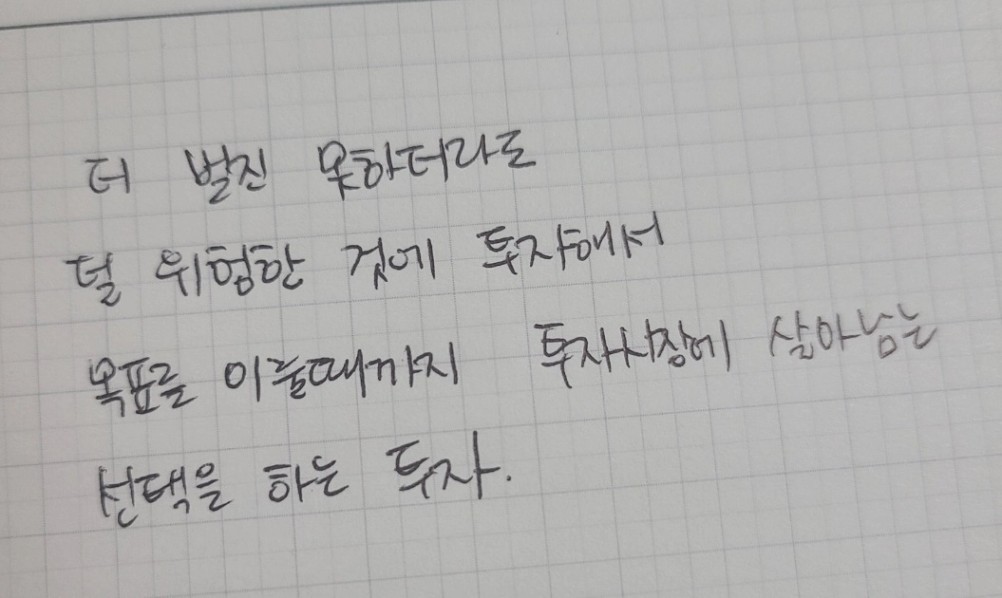 더 벌진 못하더라도
덜 위험한 것에 투자해서
목표를 이룰때까지 투자시장에 살아남는
선택을 하는 투자.